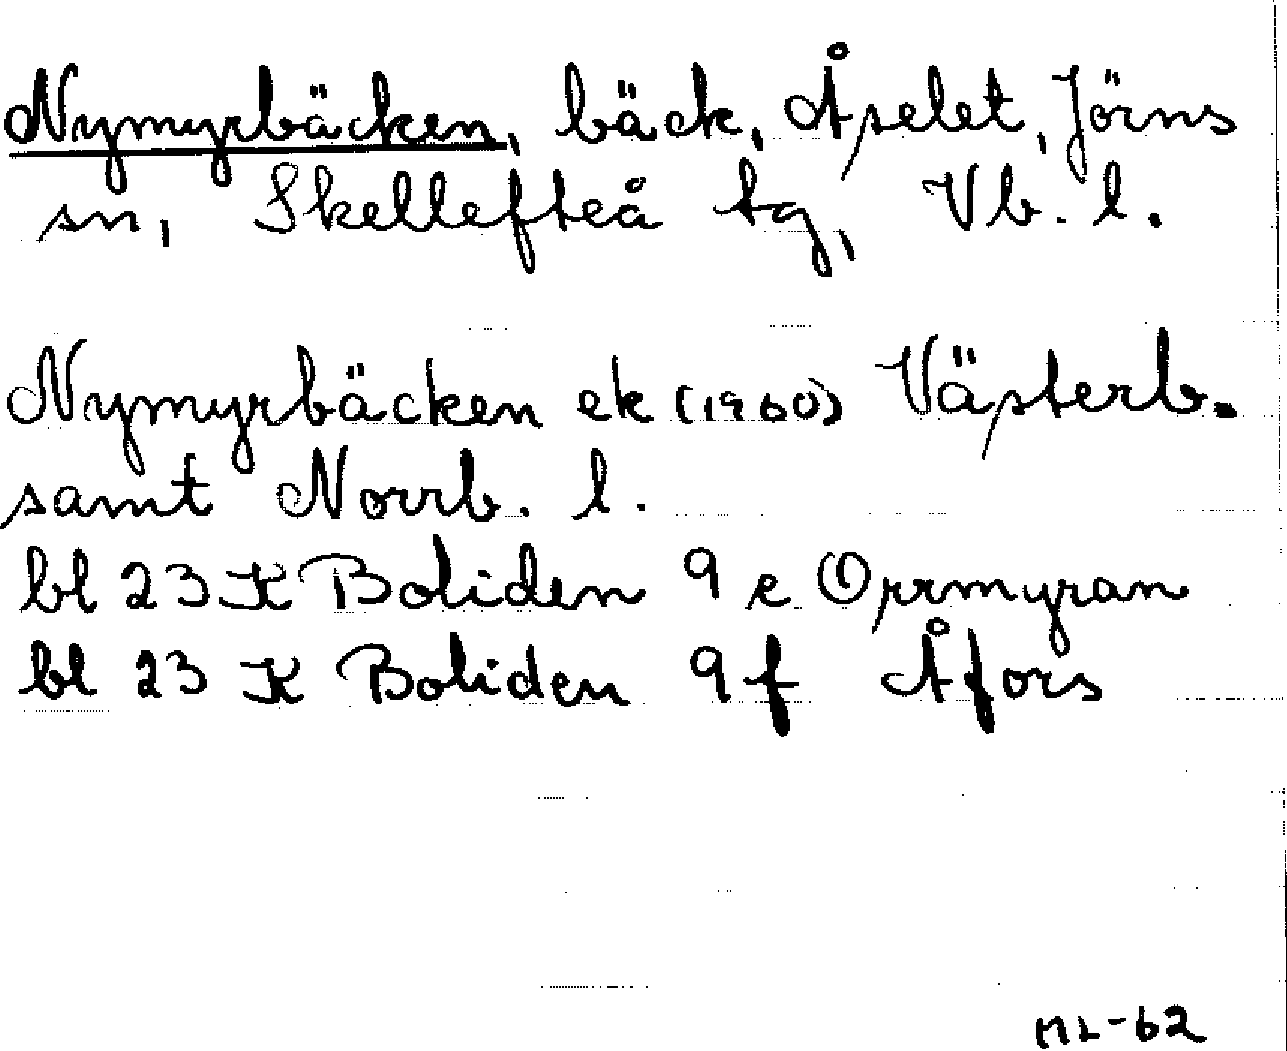 Nymyrbäcken, bäck, Åselet, Jörns
sn, Skellefteå tg, Vb. l.
Nymyrbäcken ek (1960) Västerb.
samt Norrb. l.
bl 23 K Boliden 9 e Orrmyran
bl 23 K Boliden 9 f Åfors
ML-62